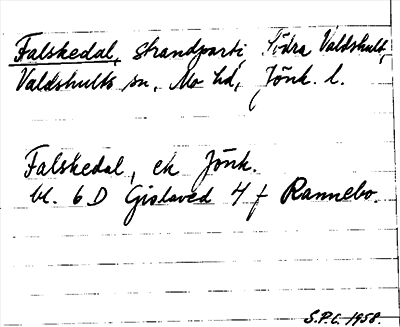 Falskedal, strandparti, Södra Valdshult,
Valdshults sn, Mo hd, Jönk. l.
Falskedal, ek Jönk.
bl. 6 D Gislaved 4 f Rannebo.
S.P.C. 1958.